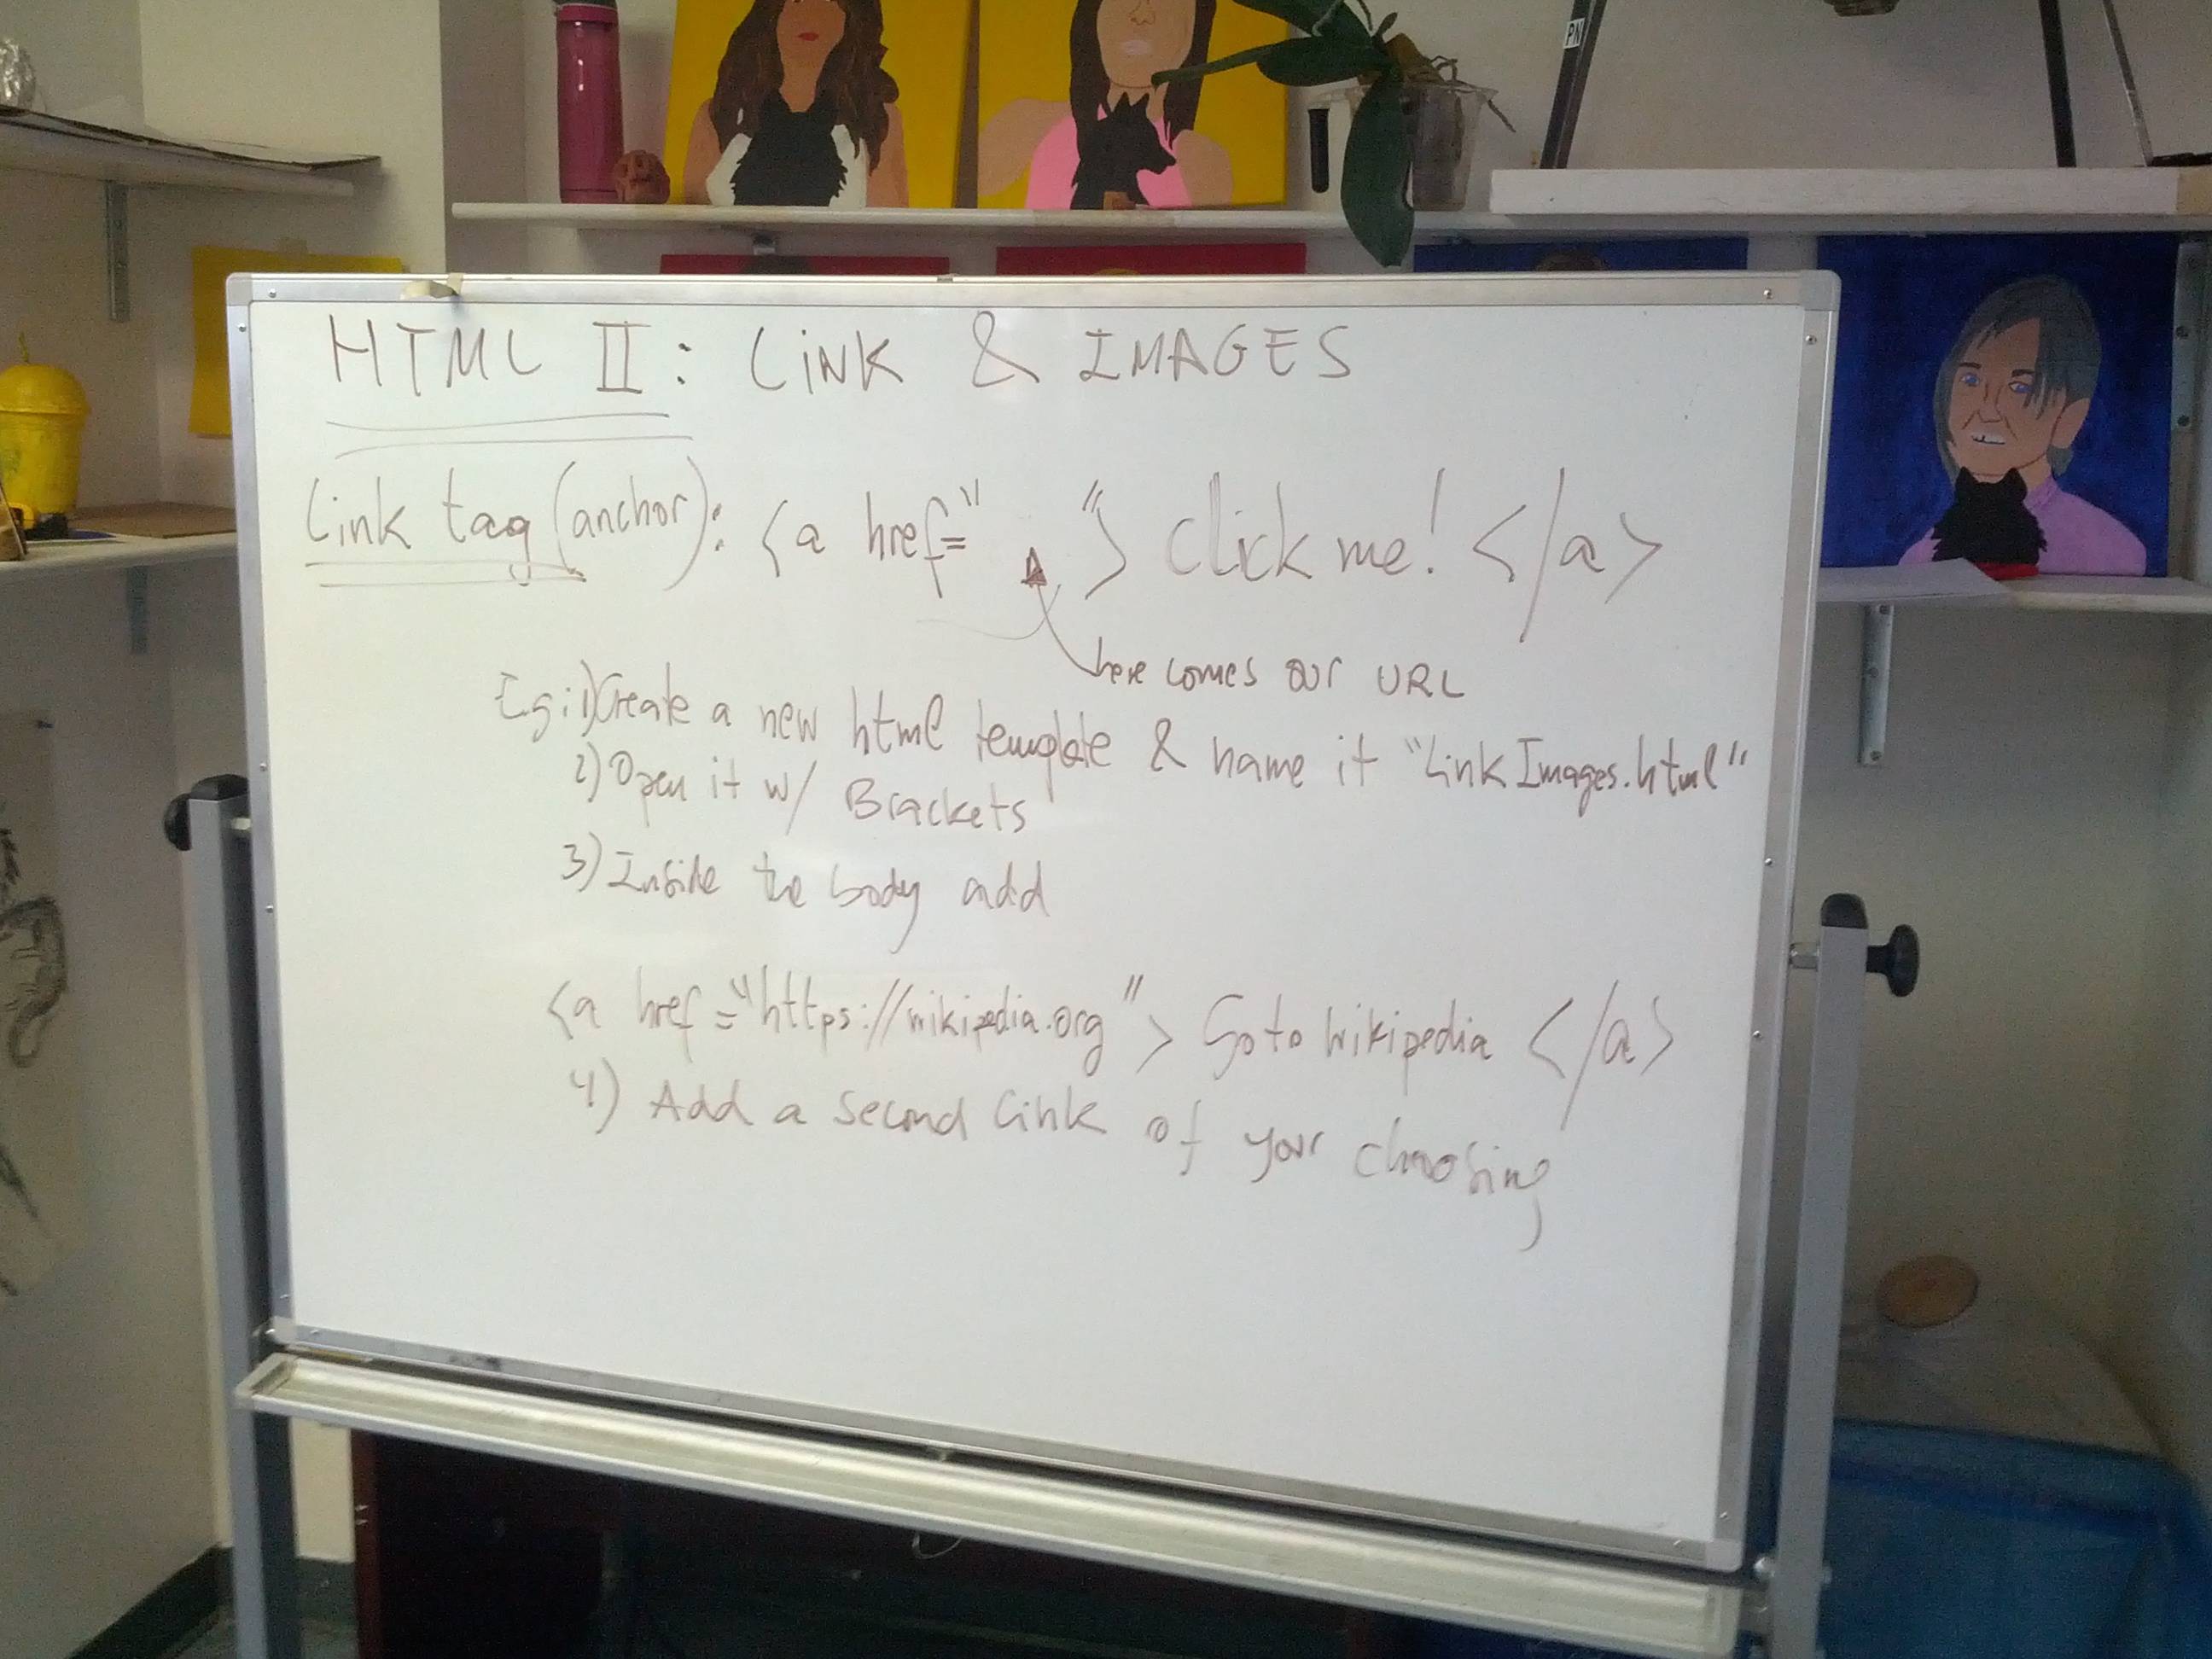 PN
HTML II: LiNK & IMAGES
Link tag (anchor): <a href=" "> Click me! </a>
here comes our URL
Eg: 1) Create a new html template & name it "LinkImages.html"
2) Open it w/ Brackets
3) Inside the body add
<a href="https://wikipedia.org"> Go to Wikipedia </a>
4) Add a second link of your choosing